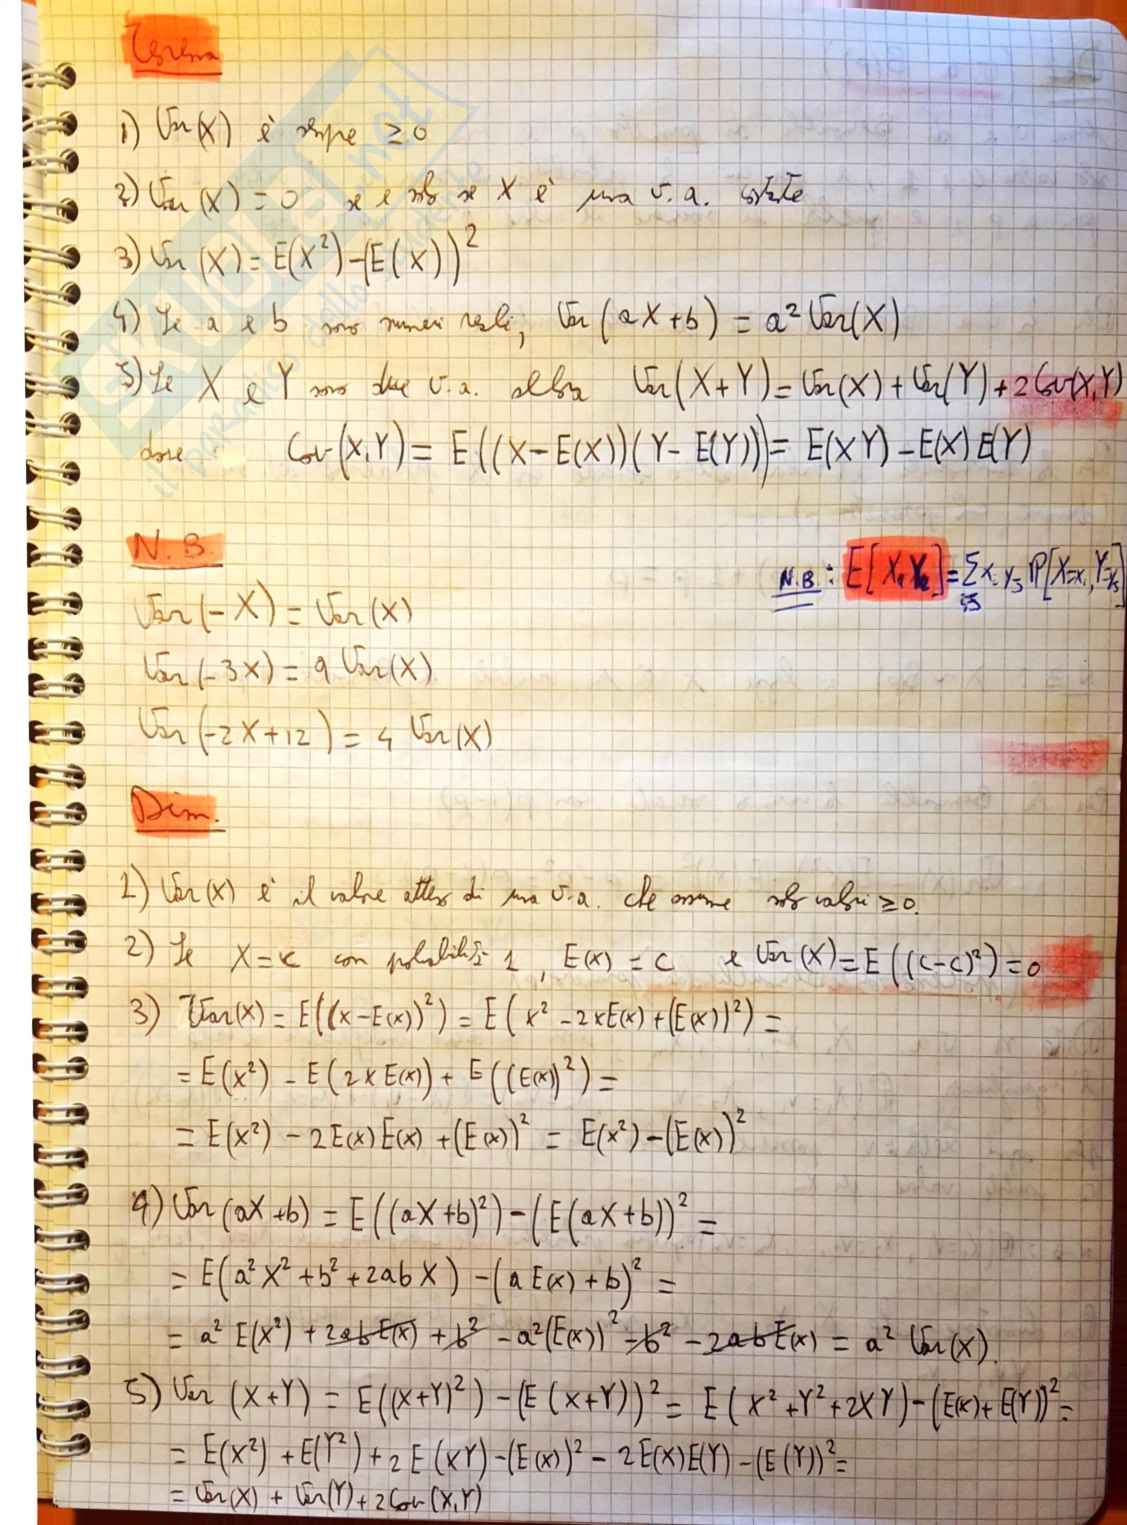 Teorema
1) Var(X) è sempre ≥ 0
2) Var(X) = 0 se e solo se X è una v.a. costante
3) Var(X) = E(X²) - (E(X))²
4) Se a e b sono numeri reali, Var(aX+b) = a² Var(X)
5) Se X e Y sono due v.a. allora Var(X+Y) = Var(X) + Var(Y) + 2Cov(X,Y)
dove Cov(X,Y) = E((X-E(X))(Y-E(Y))) = E(XY) - E(X)E(Y)
N.B.
N.B.: E[X₁Y₂] = Σ xᵢ yⱼ P[X=xᵢ, Y=yⱼ]
ij
Var(-X) = Var(X)
Var(-3X) = 9 Var(X)
Var(-2X+12) = 4 Var(X)
Dim.
1) Var(X) è il valore atteso di una v.a. che assume solo valori ≥ 0.
2) Se X=c con probabilità 1, E(X) = c e Var(X) = E((c-c)²) = 0
3) Var(X) = E((X-E(X))²) = E(X² - 2XE(X) + (E(X))²) =
= E(X²) - E(2XE(X)) + E((E(X))²) =
= E(X²) - 2E(X)E(X) + (E(X))² = E(X²) - (E(X))²
4) Var(aX+b) = E((aX+b)²) - (E(aX+b))² =
= E(a²X² + b² + 2abX) - (aE(X)+b)² =
= a² E(X²) + 2abE(X) + b² - a²(E(X))² - b² - 2abE(X) = a² Var(X).
5) Var(X+Y) = E((X+Y)²) - (E(X+Y))² = E(X²+Y²+2XY) - (E(X)+E(Y))² =
= E(X²) + E(Y²) + 2E(XY) - (E(X))² - 2E(X)E(Y) - (E(Y))² =
= Var(X) + Var(Y) + 2Cov(X,Y)